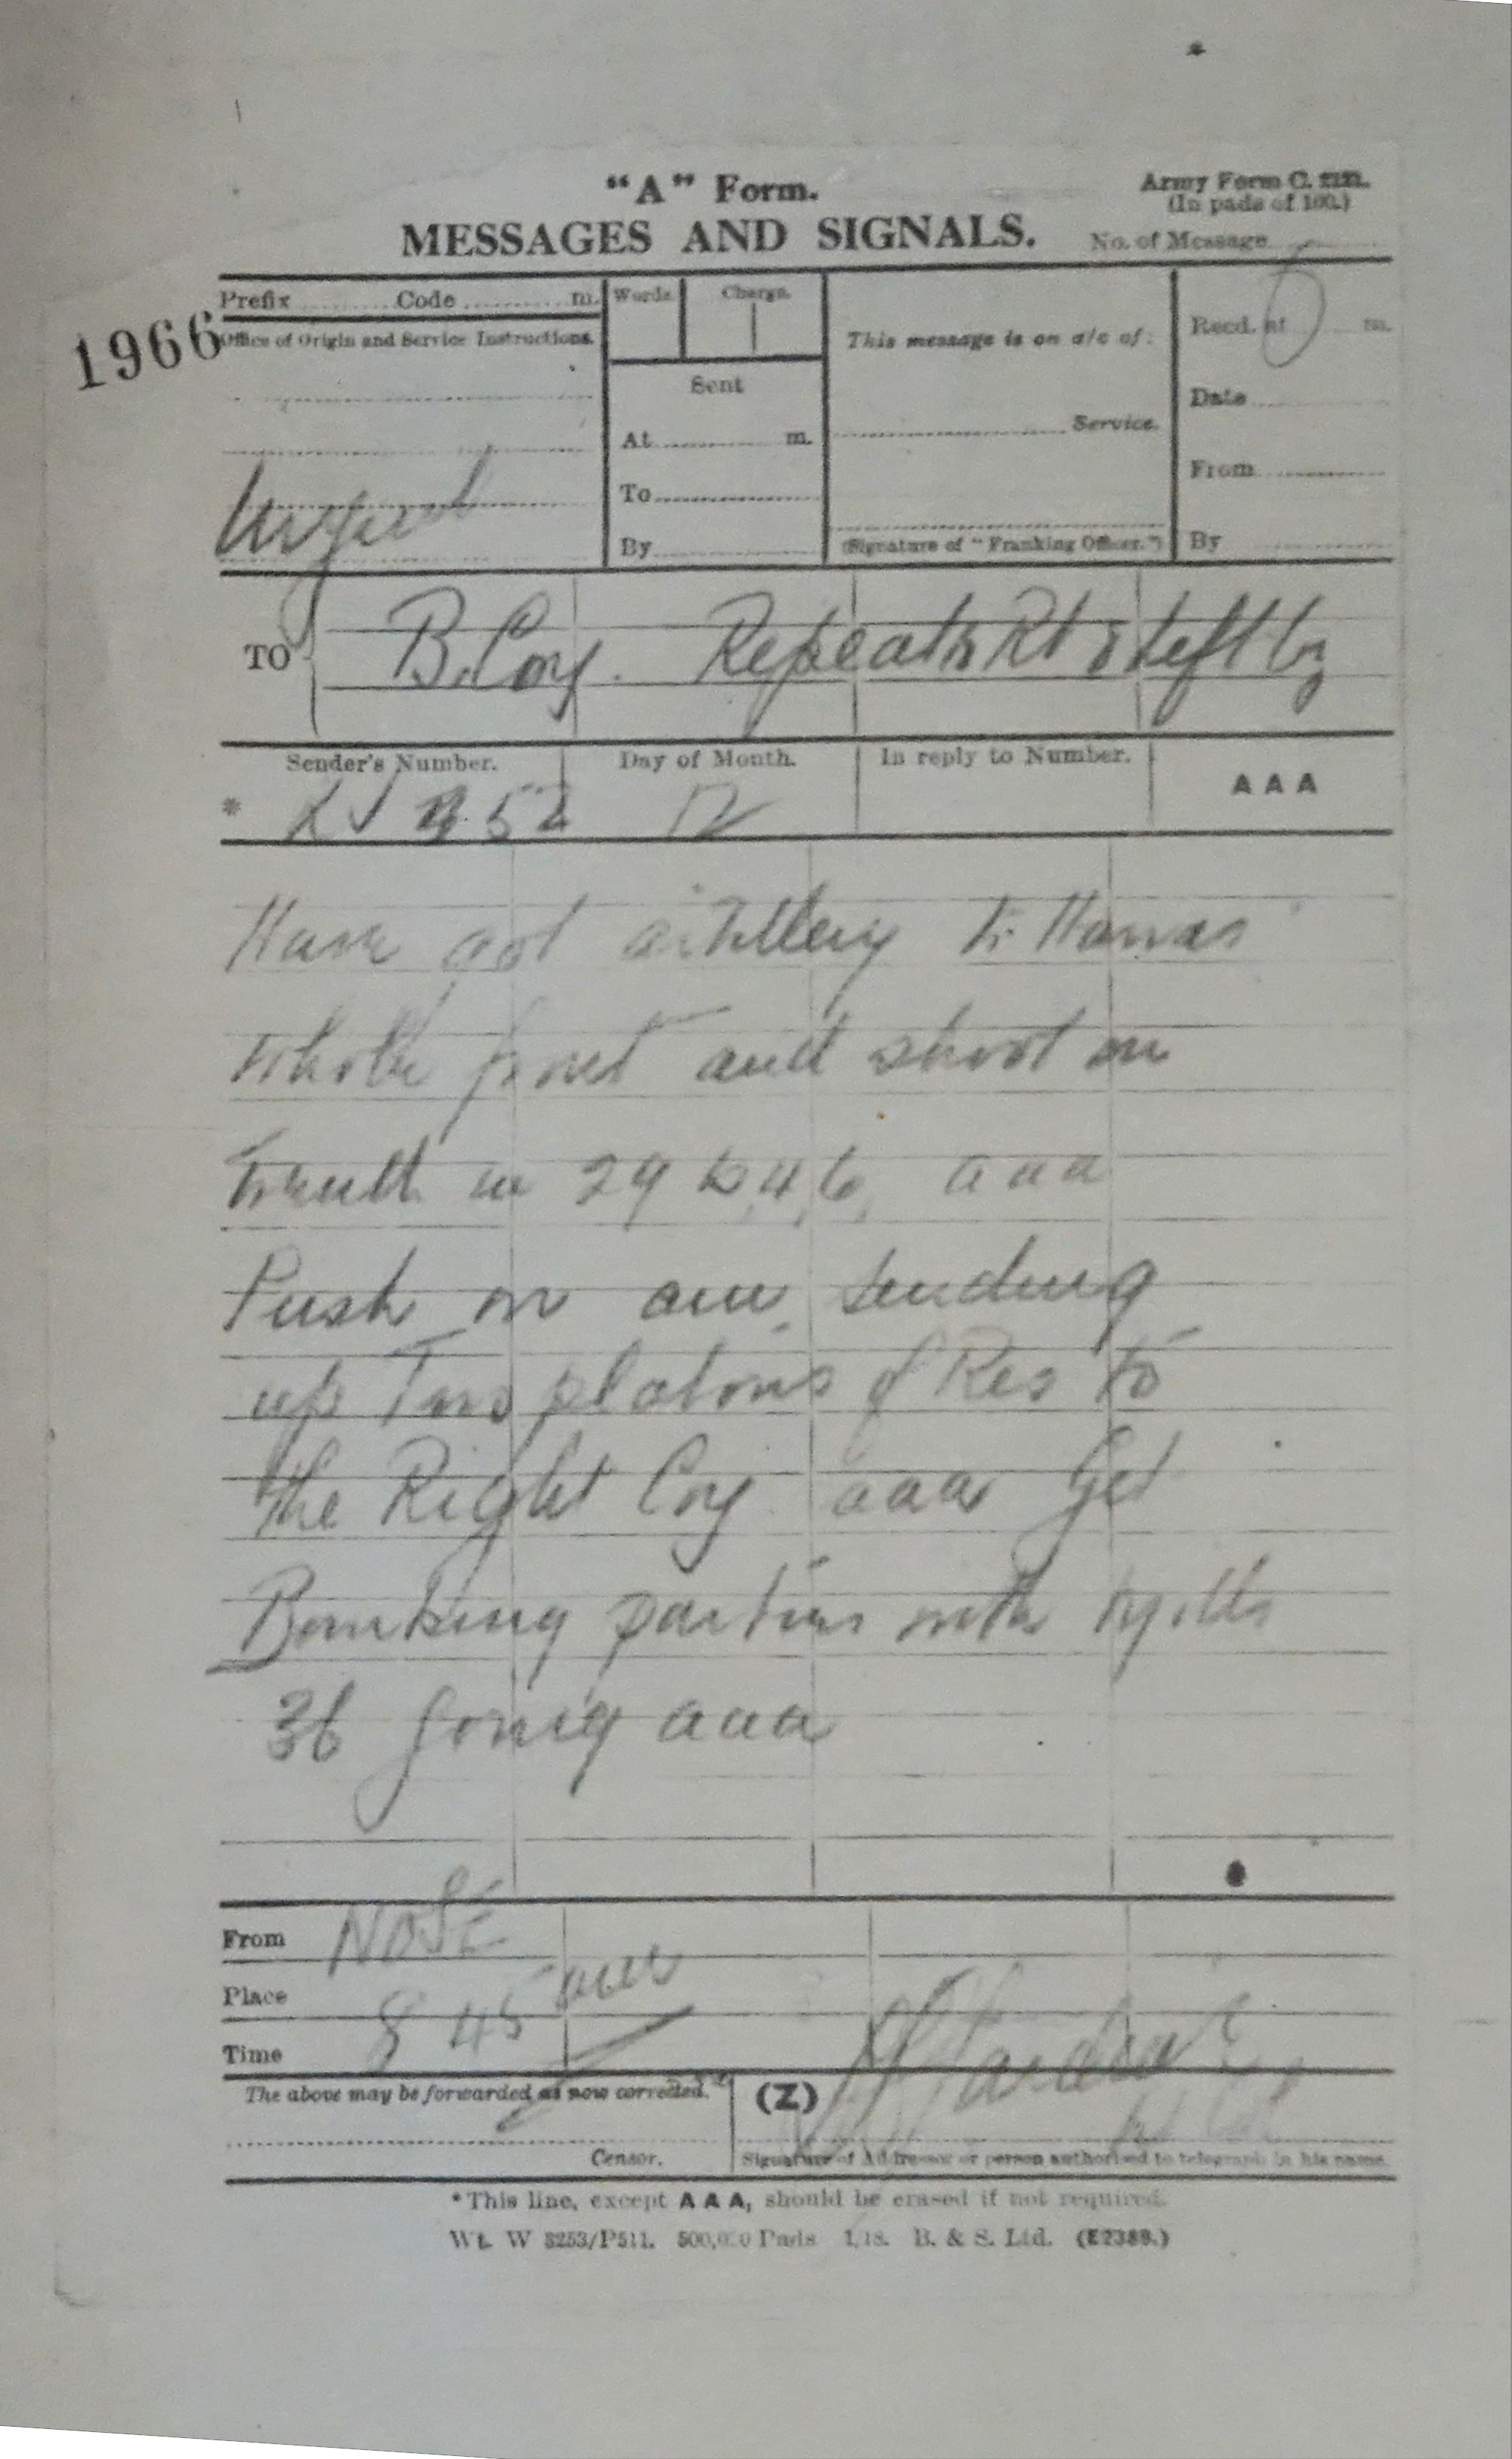 "A" Form.
Army Form C. 2121.
(In pads of 100.)
MESSAGES AND SIGNALS.
No. of Message
Prefix Code m.
Words. Charge.
1966
Office of Origin and Service Instructions.
This message is on a/c of:
Recd. at m.
Sent
Date
At m.
Service.
To
From
Urgent
By
(Signature of "Franking Officer.")
By
TO B. Coy. Repeats Rt & Left Coy
Sender's Number. Day of Month. In reply to Number. AAA
* 52 12
Have got artillery to Harras
whole front and shoot on
trench in 29 b.4.6. aaa
Push on am sending
up Two platoons of Res to
the Right Coy aaa Get
Bombing parties with Mills
36 going aaa
From NOSE
Place
Time 8 45
The above may be forwarded as now corrected.
(Z)
Censor.
Signature of Addressor or person authorised to telegraph in his name.
*This line, except AAA, should be erased if not required.
Wt. W 3253/P511. 500,000 Pads 1/18. B. & S. Ltd. (E2389.)